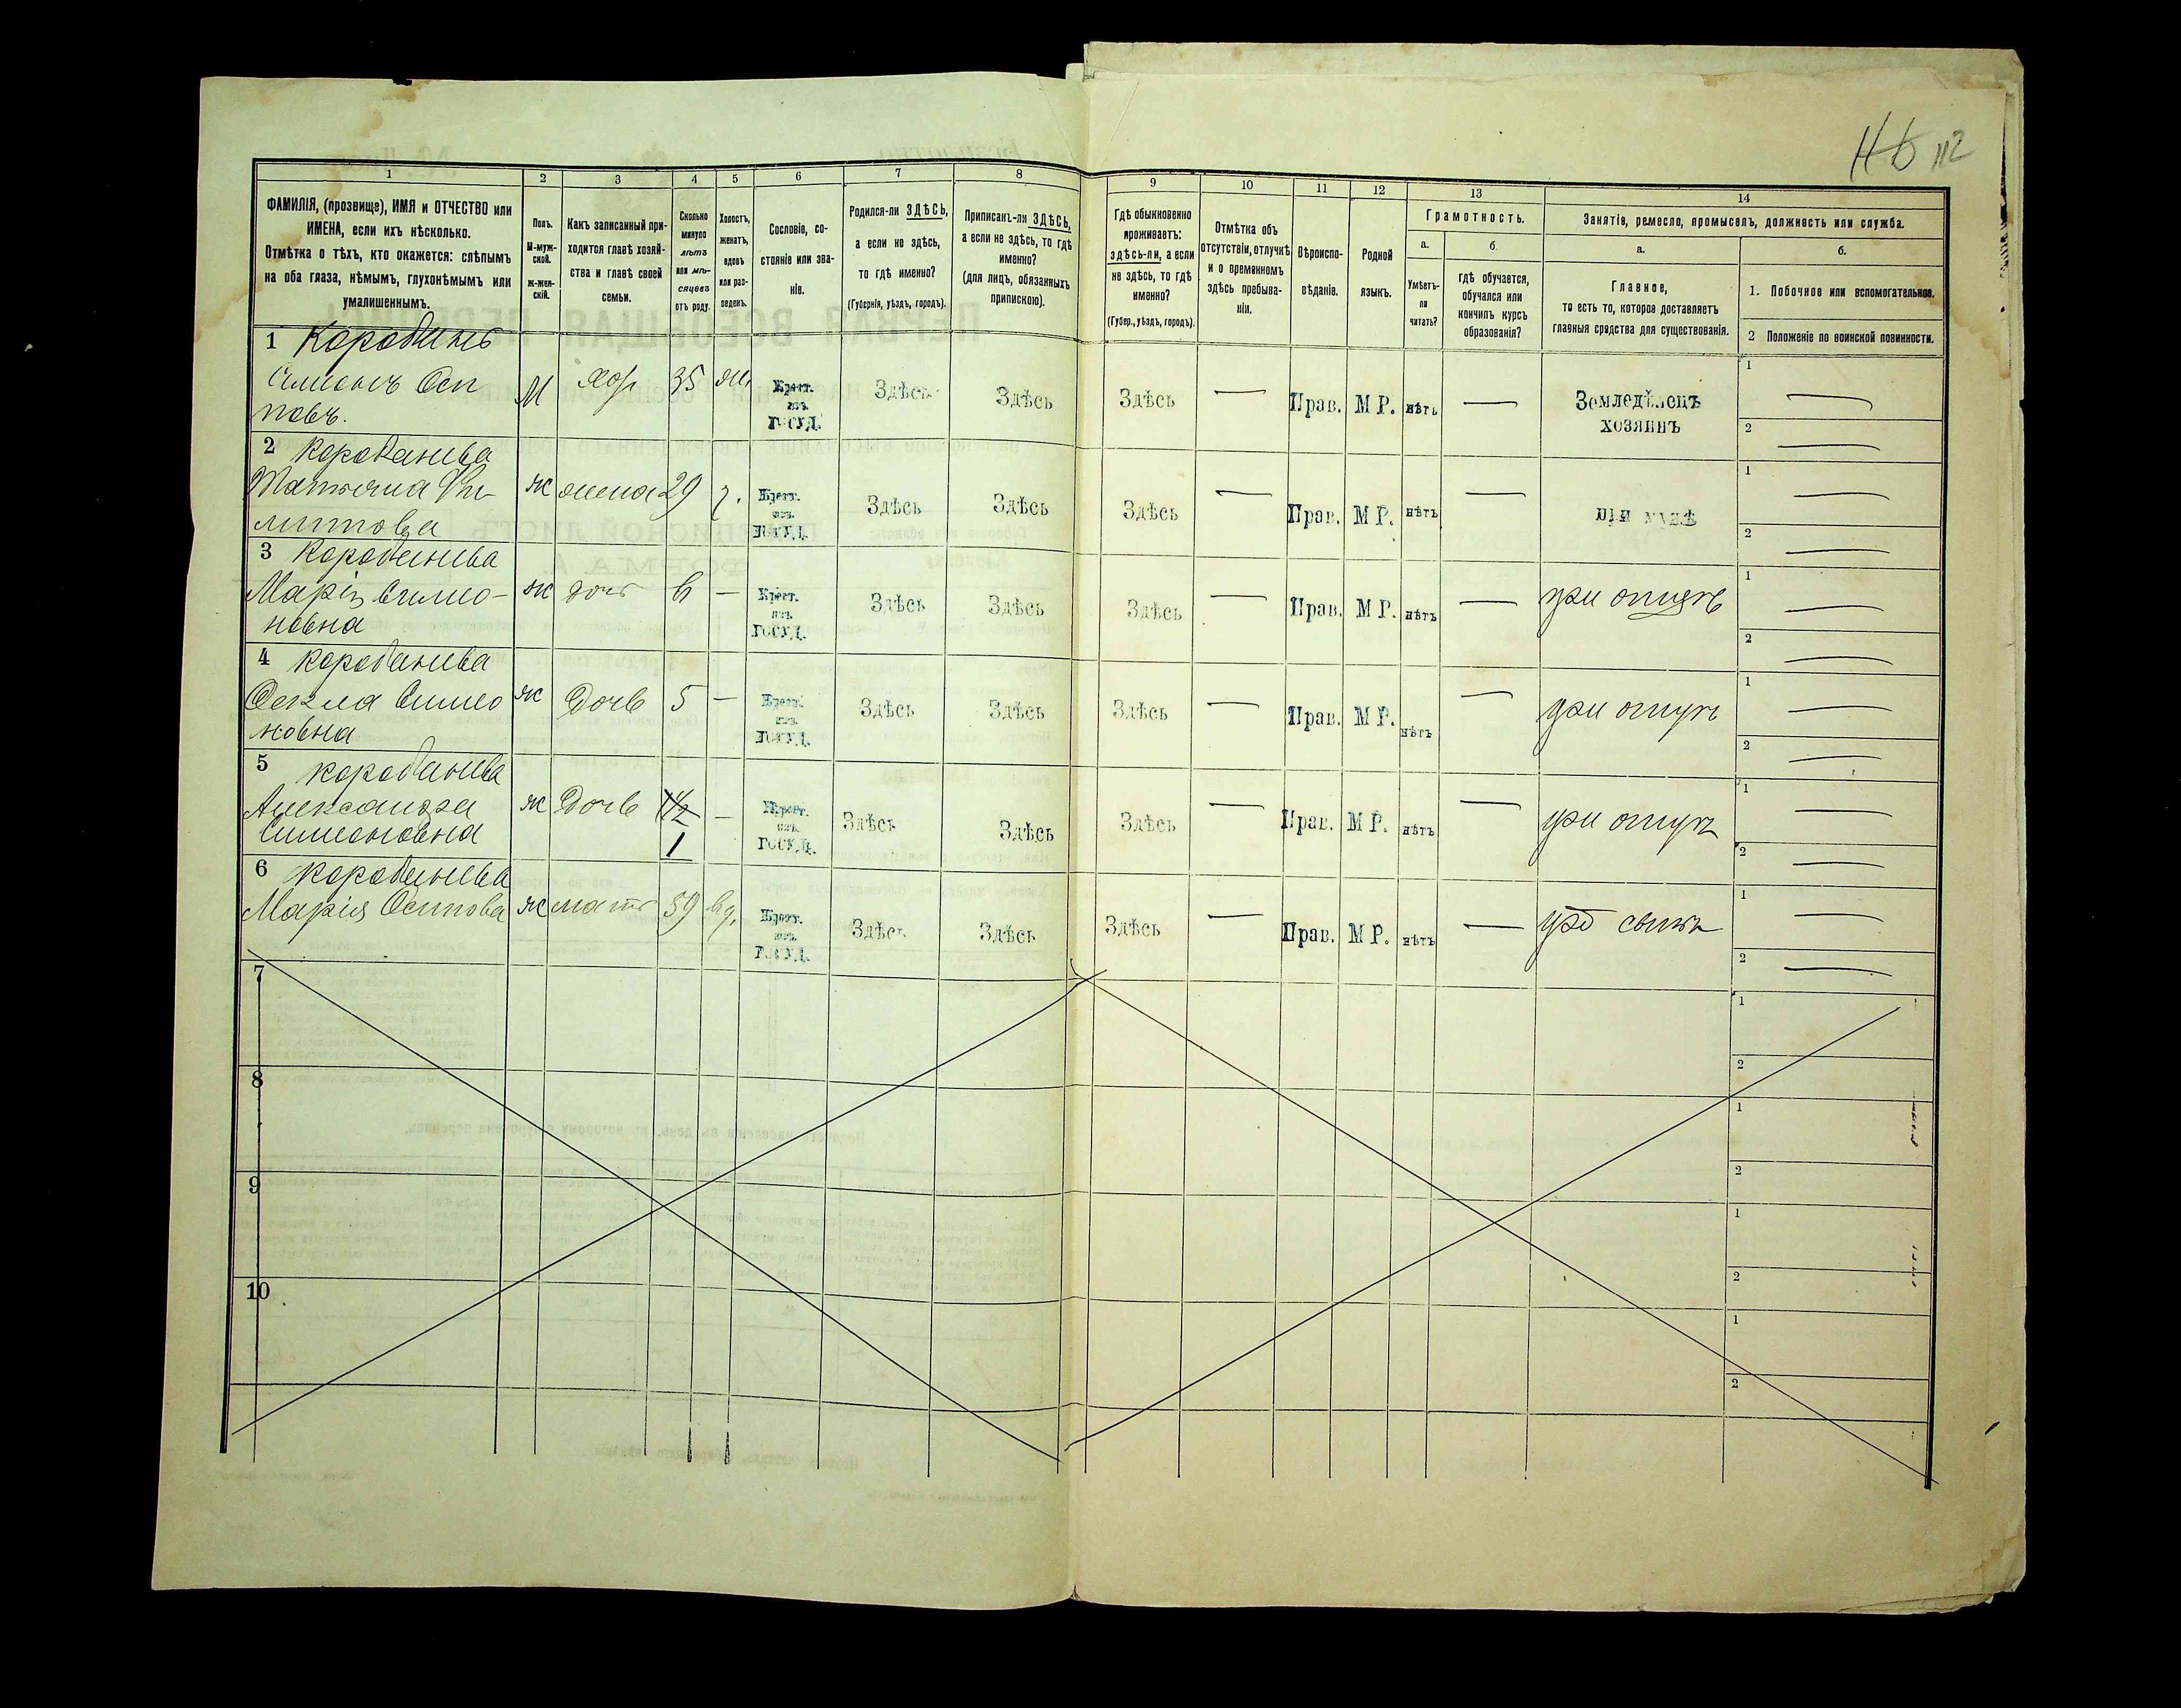 112
1 2 3 4 5 6 7 8 9 10 11 12 13 14
ФАМИЛІЯ, (прозвище), ИМЯ и ОТЧЕСТВО или
ИМЕНА, если ихъ нѣсколько.
Отмѣтка о тѣхъ, кто окажется: слѣпымъ
на оба глаза, нѣмымъ, глухонѣмымъ или
умалишеннымъ.
Полъ.
М-муж-
ской.
ж-жен-
скій.
Какъ записанный при-
ходится главѣ хозяй-
ства и главѣ своей
семьи.
Сколько
минуло
лѣтъ
или мѣ-
сяцевъ
отъ роду.
Холостъ,
женатъ,
вдовъ
или раз-
веденъ.
Сословіе, со-
стояніе или зва-
ніе.
Родился-ли ЗДѢСЬ,
а если не здѣсь,
то гдѣ именно?
(Губернія, уѣздъ, городъ).
Приписанъ-ли ЗДѢСЬ,
а если не здѣсь, то гдѣ
именно?
(для лицъ, обязанныхъ
припискою).
Гдѣ обыкновенно
проживаетъ:
здѣсь-ли, а если
не здѣсь, то гдѣ
именно?
(Губер., уѣздъ, городъ).
Отмѣтка объ
отсутствіи, отлучкѣ
и о временномъ
здѣсь пребыва-
ніи.
Вѣроиспо-
вѣданіе.
Родной
языкъ.
Грамотность.
а.
Умѣетъ-
ли
читать?
б.
гдѣ обучается,
обучался или
кончилъ курсъ
образованія?
Занятіе, ремесло, промыселъ, должность или служба.
а.
Главное,
то есть то, которое доставляетъ
главныя средства для существованія.
б.
1. Побочное или вспомогательное.
2 Положеніе по воинской повинности.
1
Симонъ Оси
повъ.
М 35 Крест. изъ ГОСУД. Здѣсь Здѣсь Здѣсь — Прав. М Р. нѣтъ — Земледѣлецъ хозяинъ 1 — 2 —
2
Татьяна Фи-
липова
ж жена 29 Крест. изъ ГОСУД. Здѣсь Здѣсь Здѣсь — Прав. М Р. нѣтъ — при мужѣ 1 — 2 —
3
Марія Симо-
новна
ж дочь — Крест. изъ ГОСУД. Здѣсь Здѣсь Здѣсь — Прав. М Р. нѣтъ — при отцѣ 1 — 2 —
4
Фекла Симо
новна
ж Дочь 5 — Крест. изъ ГОСУД. Здѣсь Здѣсь Здѣсь — Прав. М Р. нѣтъ — при отцѣ 1 — 2 —
5
Александра
Симоновна
ж Дочь 1 — Крест. изъ ГОСУД. Здѣсь Здѣсь Здѣсь — Прав. М Р. нѣтъ — при отцѣ 1 — 2 —
6
Марія Осипова ж мать 59 вд. Крест. изъ ГОСУД. Здѣсь Здѣсь Здѣсь — Прав. М Р. нѣтъ — при сынѣ 1 — 2 —
7 1 2
8 1 2
9 1 2
10 1 2